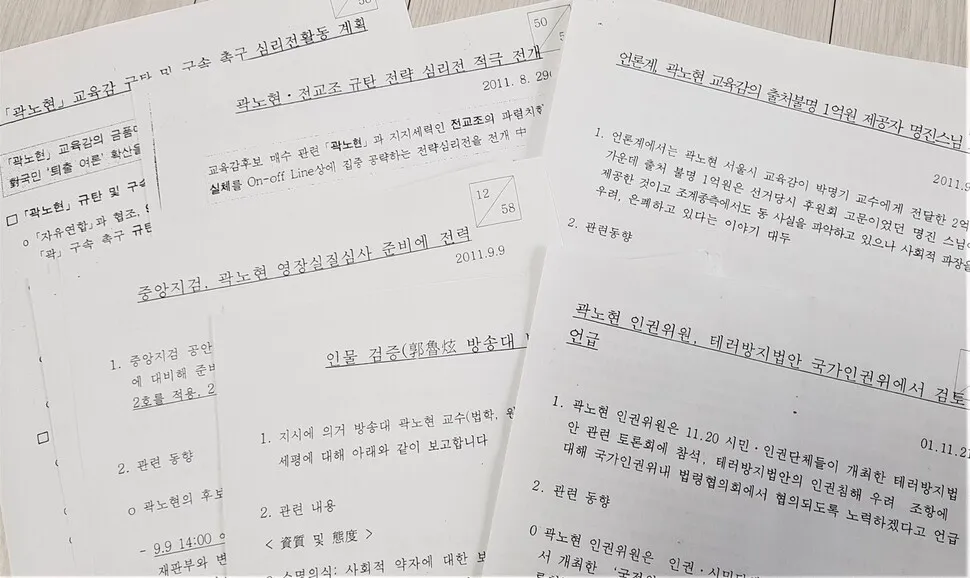 50
「곽노현」 교육감 규탄 및 구속 촉구 심리전활동 계획
「곽노현」 교육감의 금품
對국민 '퇴출 여론' 확산
□ 「곽노현」 규탄 및 구속
ㅇ 「자유연합」과 협조,
「곽」 구속 촉구 규탄
50
곽노현·전교조 규탄 전략 심리전 적극 전개
2011. 8. 29
교육감후보 매수 관련 「곽노현」과 지지세력인 전교조의 파렴치
실체를 On-off Line상에 집중 공략하는 전략심리전을 전개 中
12
58
중앙지검, 곽노현 영장실질심사 준비에 전력
2011.9.9
1. 중앙지검 공안
에 대비해 준비
2호를 적용, 2
2. 관련 동향
ㅇ 곽노현의 후보
- 9.9 14:00
재판부와 변
인물 검증(郭魯炫 방송대
1. 지시에 의거 방송대 곽노현 교수(법학,
세평에 대해 아래와 같이 보고합니다
2. 관련 내용
< 資質 및 態度 >
ㅇ 소명의식: 사회적 약자에 대한 보
언론계, 곽노현 교육감의 출처불명 1억원 제공자 명진스님
2011.9
1. 언론계에서는 곽노현 서울시 교육감이 박명기 교수에게 전달한 2억
가운데 출처 불명 1억원은 선거당시 후원회 고문이었던 명진 스님이
제공한 것이고 조계종측에서도 동 사실을 파악하고 있으나 사회적 파장을
우려, 은폐하고 있다는 이야기 대두
2. 관련동향
곽노현 인권위원, 테러방지법안 국가인권위에서 검토
언급
01.11.21
1. 곽노현 인권위원은 11.20 시민·인권단체들이 개최한 테러방지법
안 관련 토론회에 참석, 테러방지법안의 인권침해 우려 조항에
대해 국가인권위내 법령협의회에서 협의되도록 노력하겠다고 언급
2. 관련 동향
ㅇ 곽노현 인권위원은 인권·시민단체
서 개최한